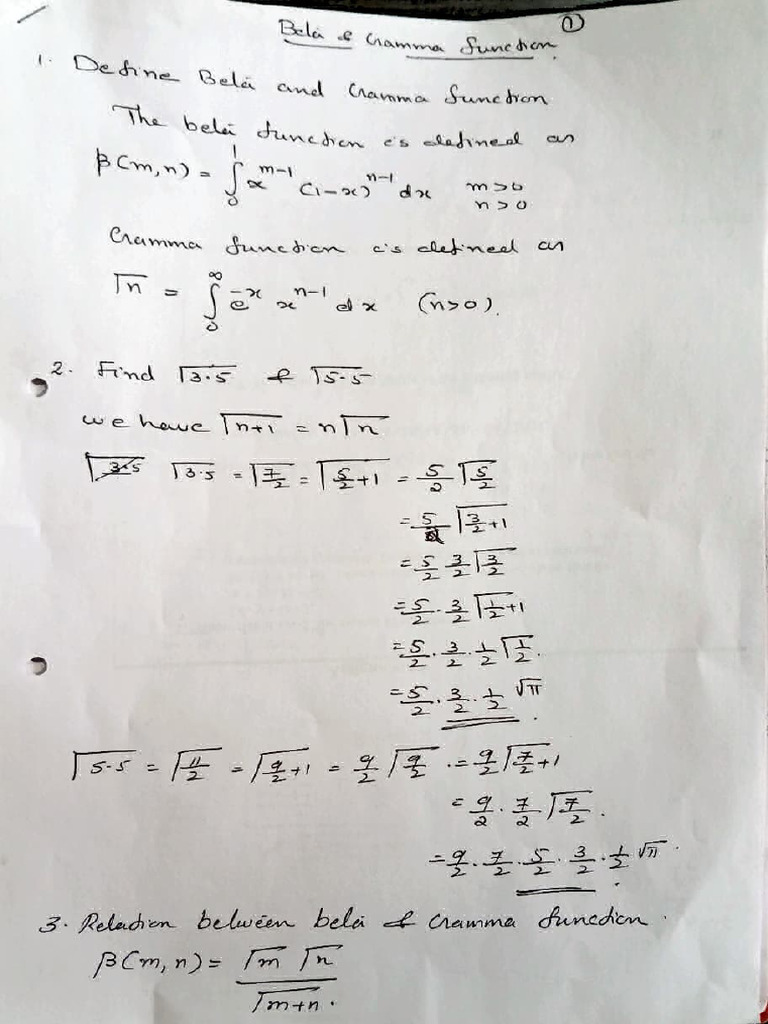 Beta & Gamma function ①
1. Define Beta and Gamma function
The beta function is defined as
β(m,n) = ∫₀¹ x^(m-1) (1-x)^(n-1) dx m>0
n>0
Gamma function is defined as
Γn = ∫₀^∞ e^(-x) x^(n-1) dx (n>0).
2. Find Γ3.5 & Γ5.5
we have Γ(n+1) = nΓn
Γ3.5 = Γ(7/2) = Γ(5/2+1) = 5/2 Γ(5/2)
= 5/2 Γ(3/2+1)
= 5/2 3/2 Γ(3/2)
= 5/2 · 3/2 Γ(1/2+1)
= 5/2 · 3/2 · 1/2 Γ(1/2).
= 5/2 · 3/2 · 1/2 √π.
Γ5.5 = Γ(11/2) = Γ(9/2+1) = 9/2 Γ(9/2) . = 9/2 Γ(7/2+1)
= 9/2 · 7/2 Γ(7/2).
= 9/2 · 7/2 · 5/2 · 3/2 · 1/2 √π.
3. Relation between beta & Gamma function.
β(m,n) = Γm Γn
Γ(m+n).